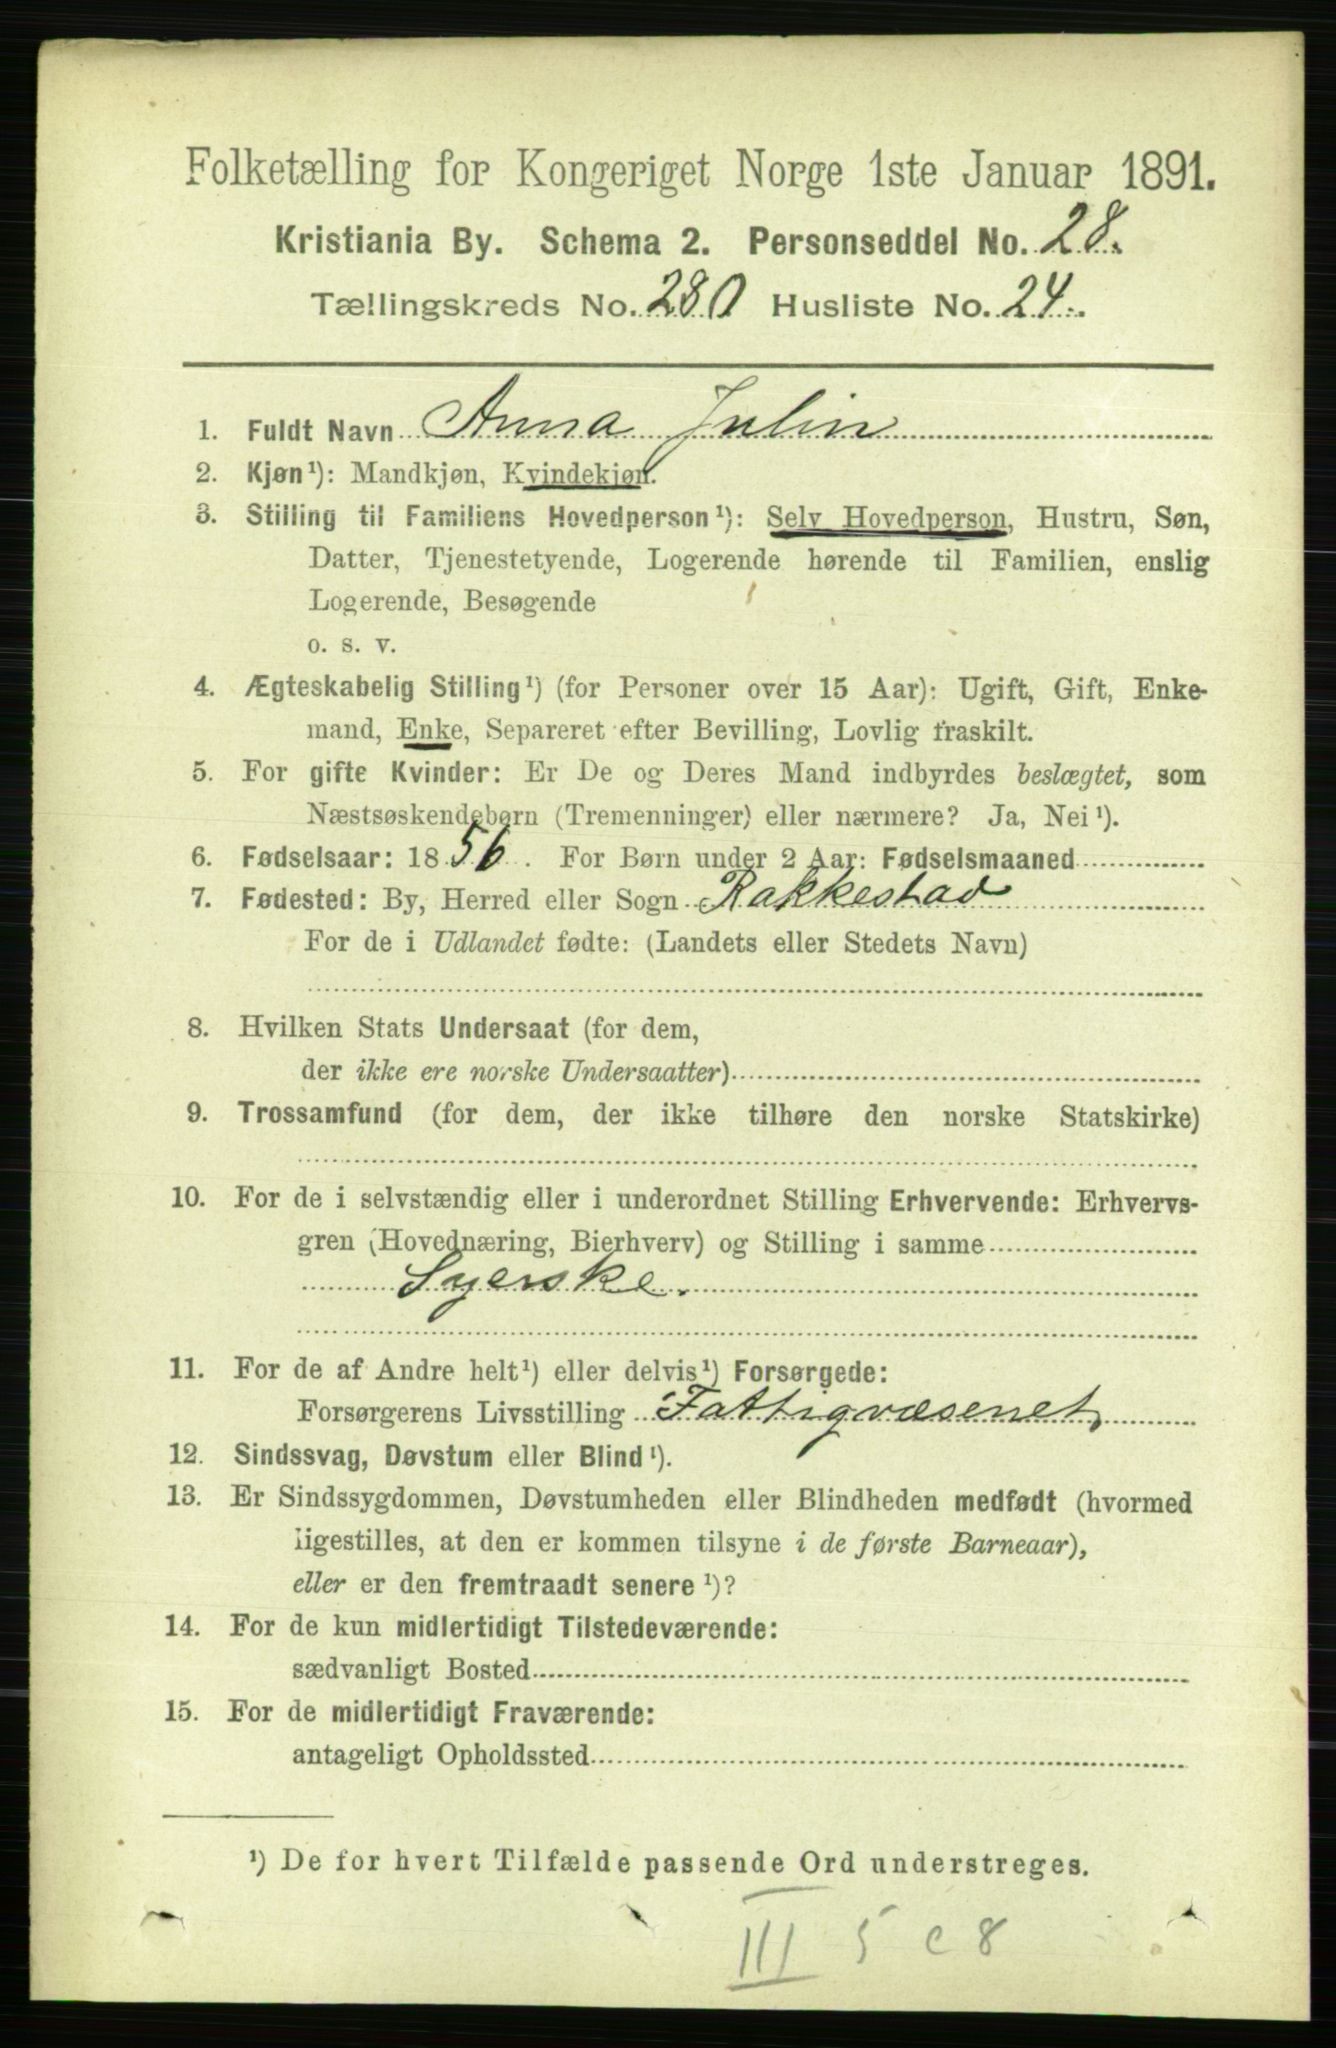 Folketælling for Kongeriget Norge 1ste Januar 1891.
Kristiania By. Schema 2. Personseddel No. 28.
Tællingskreds No. 280 Husliste No. 24.
1. Fuldt Navn Anna Julin
2. Kjøn¹): Mandkjøn, Kvindekjøn.
3. Stilling til Familiens Hovedperson¹): Selv Hovedperson, Hustru, Søn,
Datter, Tjenestetyende, Logerende hørende til Familien, enslig
Logerende, Besøgende
o. s. v.
4. Ægteskabelig Stilling¹) (for Personer over 15 Aar): Ugift, Gift, Enke-
mand, Enke, Separeret efter Bevilling, Lovlig fraskilt.
5. For gifte Kvinder: Er De og Deres Mand indbyrdes beslægtet, som
Næstsøskendebørn (Tremenninger) eller nærmere? Ja, Nei¹).
6. Fødselsaar: 1856. For Børn under 2 Aar: Fødselsmaaned
7. Fødested: By, Herred eller Sogn Rakkestad
For de i Udlandet fødte: (Landets eller Stedets Navn)
8. Hvilken Stats Undersaat (for dem,
der ikke ere norske Undersaatter)
9. Trossamfund (for dem, der ikke tilhøre den norske Statskirke)
10. For de i selvstændig eller i underordnet Stilling Erhvervende: Erhvervs-
gren (Hovednæring, Bierhverv) og Stilling i samme
Syerske.
11. For de af Andre helt¹) eller delvis¹) Forsørgede:
Forsørgerens Livsstilling Fattigvæsenet,
12. Sindssvag, Døvstum eller Blind¹).
13. Er Sindssygdommen, Døvstumheden eller Blindheden medfødt (hvormed
ligestilles, at den er kommen tilsyne i de første Barneaar),
eller er den fremtraadt senere¹)?
14. For de kun midlertidigt Tilstedeværende:
sædvanligt Bosted
15. For de midlertidigt Fraværende:
antageligt Opholdssted
¹) De for hvert Tilfælde passende Ord understreges.
III 5 c 8